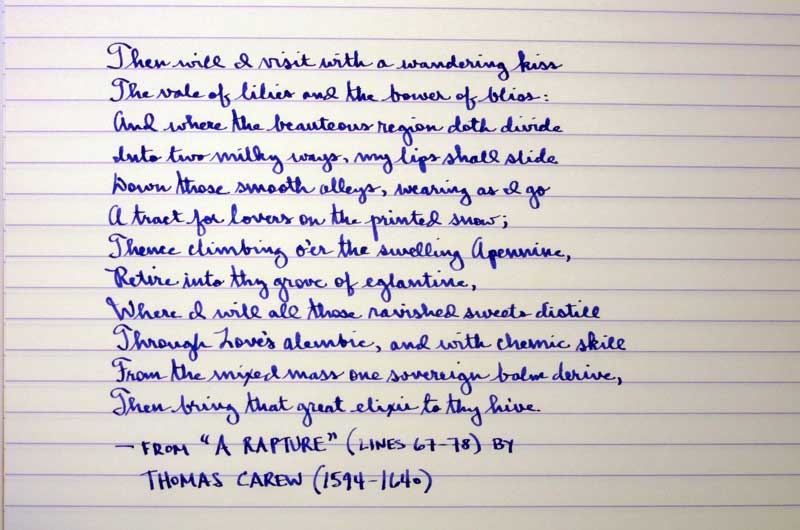 Then will I visit with a wandering kiss
The vale of lilies and the bower of bliss:
And where the beauteous region doth divide
Into two milky ways, my lips shall slide
Down those smooth alleys, wearing as I go
A tract for lovers on the printed snow;
Thence climbing o'er the swelling Apennine,
Retire into thy grove of eglantine,
Where I will all those ravished sweets distill
Through Love's alembic, and with chemic skill
From the mixed mass one sovereign balm derive,
Then bring that great elixir to thy hive.
— FROM "A RAPTURE" (LINES 67-78) BY
THOMAS CAREW (1594-1640)